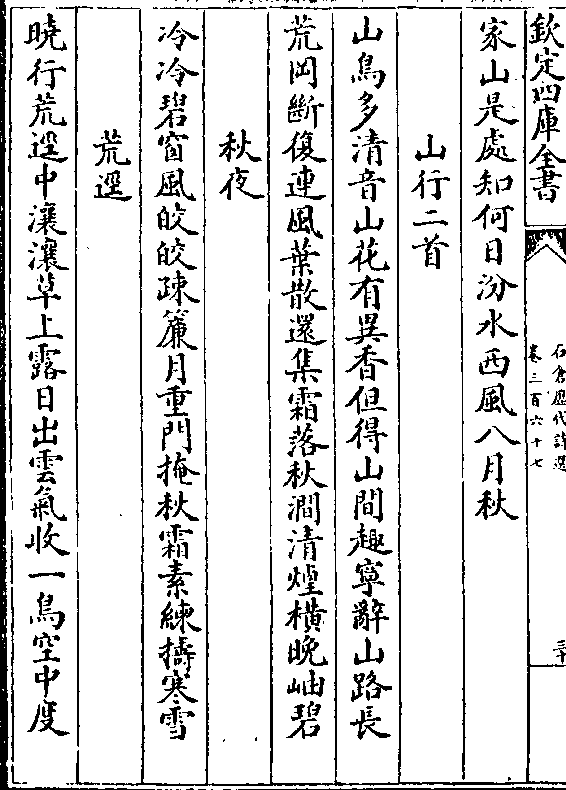 欽定四庫全書
石倉歷代詩選
卷三百六十七
三十
家山是處知何日汾水西風八月秋
山行二首
山鳥多清音山花有異香但得山間趣寧辭山路長
荒岡斷復連風葉散還集霜落秋澗清煙橫晚岫碧
秋夜
冷冷碧窗風皎皎疎簾月重門掩秋霜素練擣寒雪
荒逕
曉行荒逕中瀼瀼草上露日出雲氣收一鳥空中度